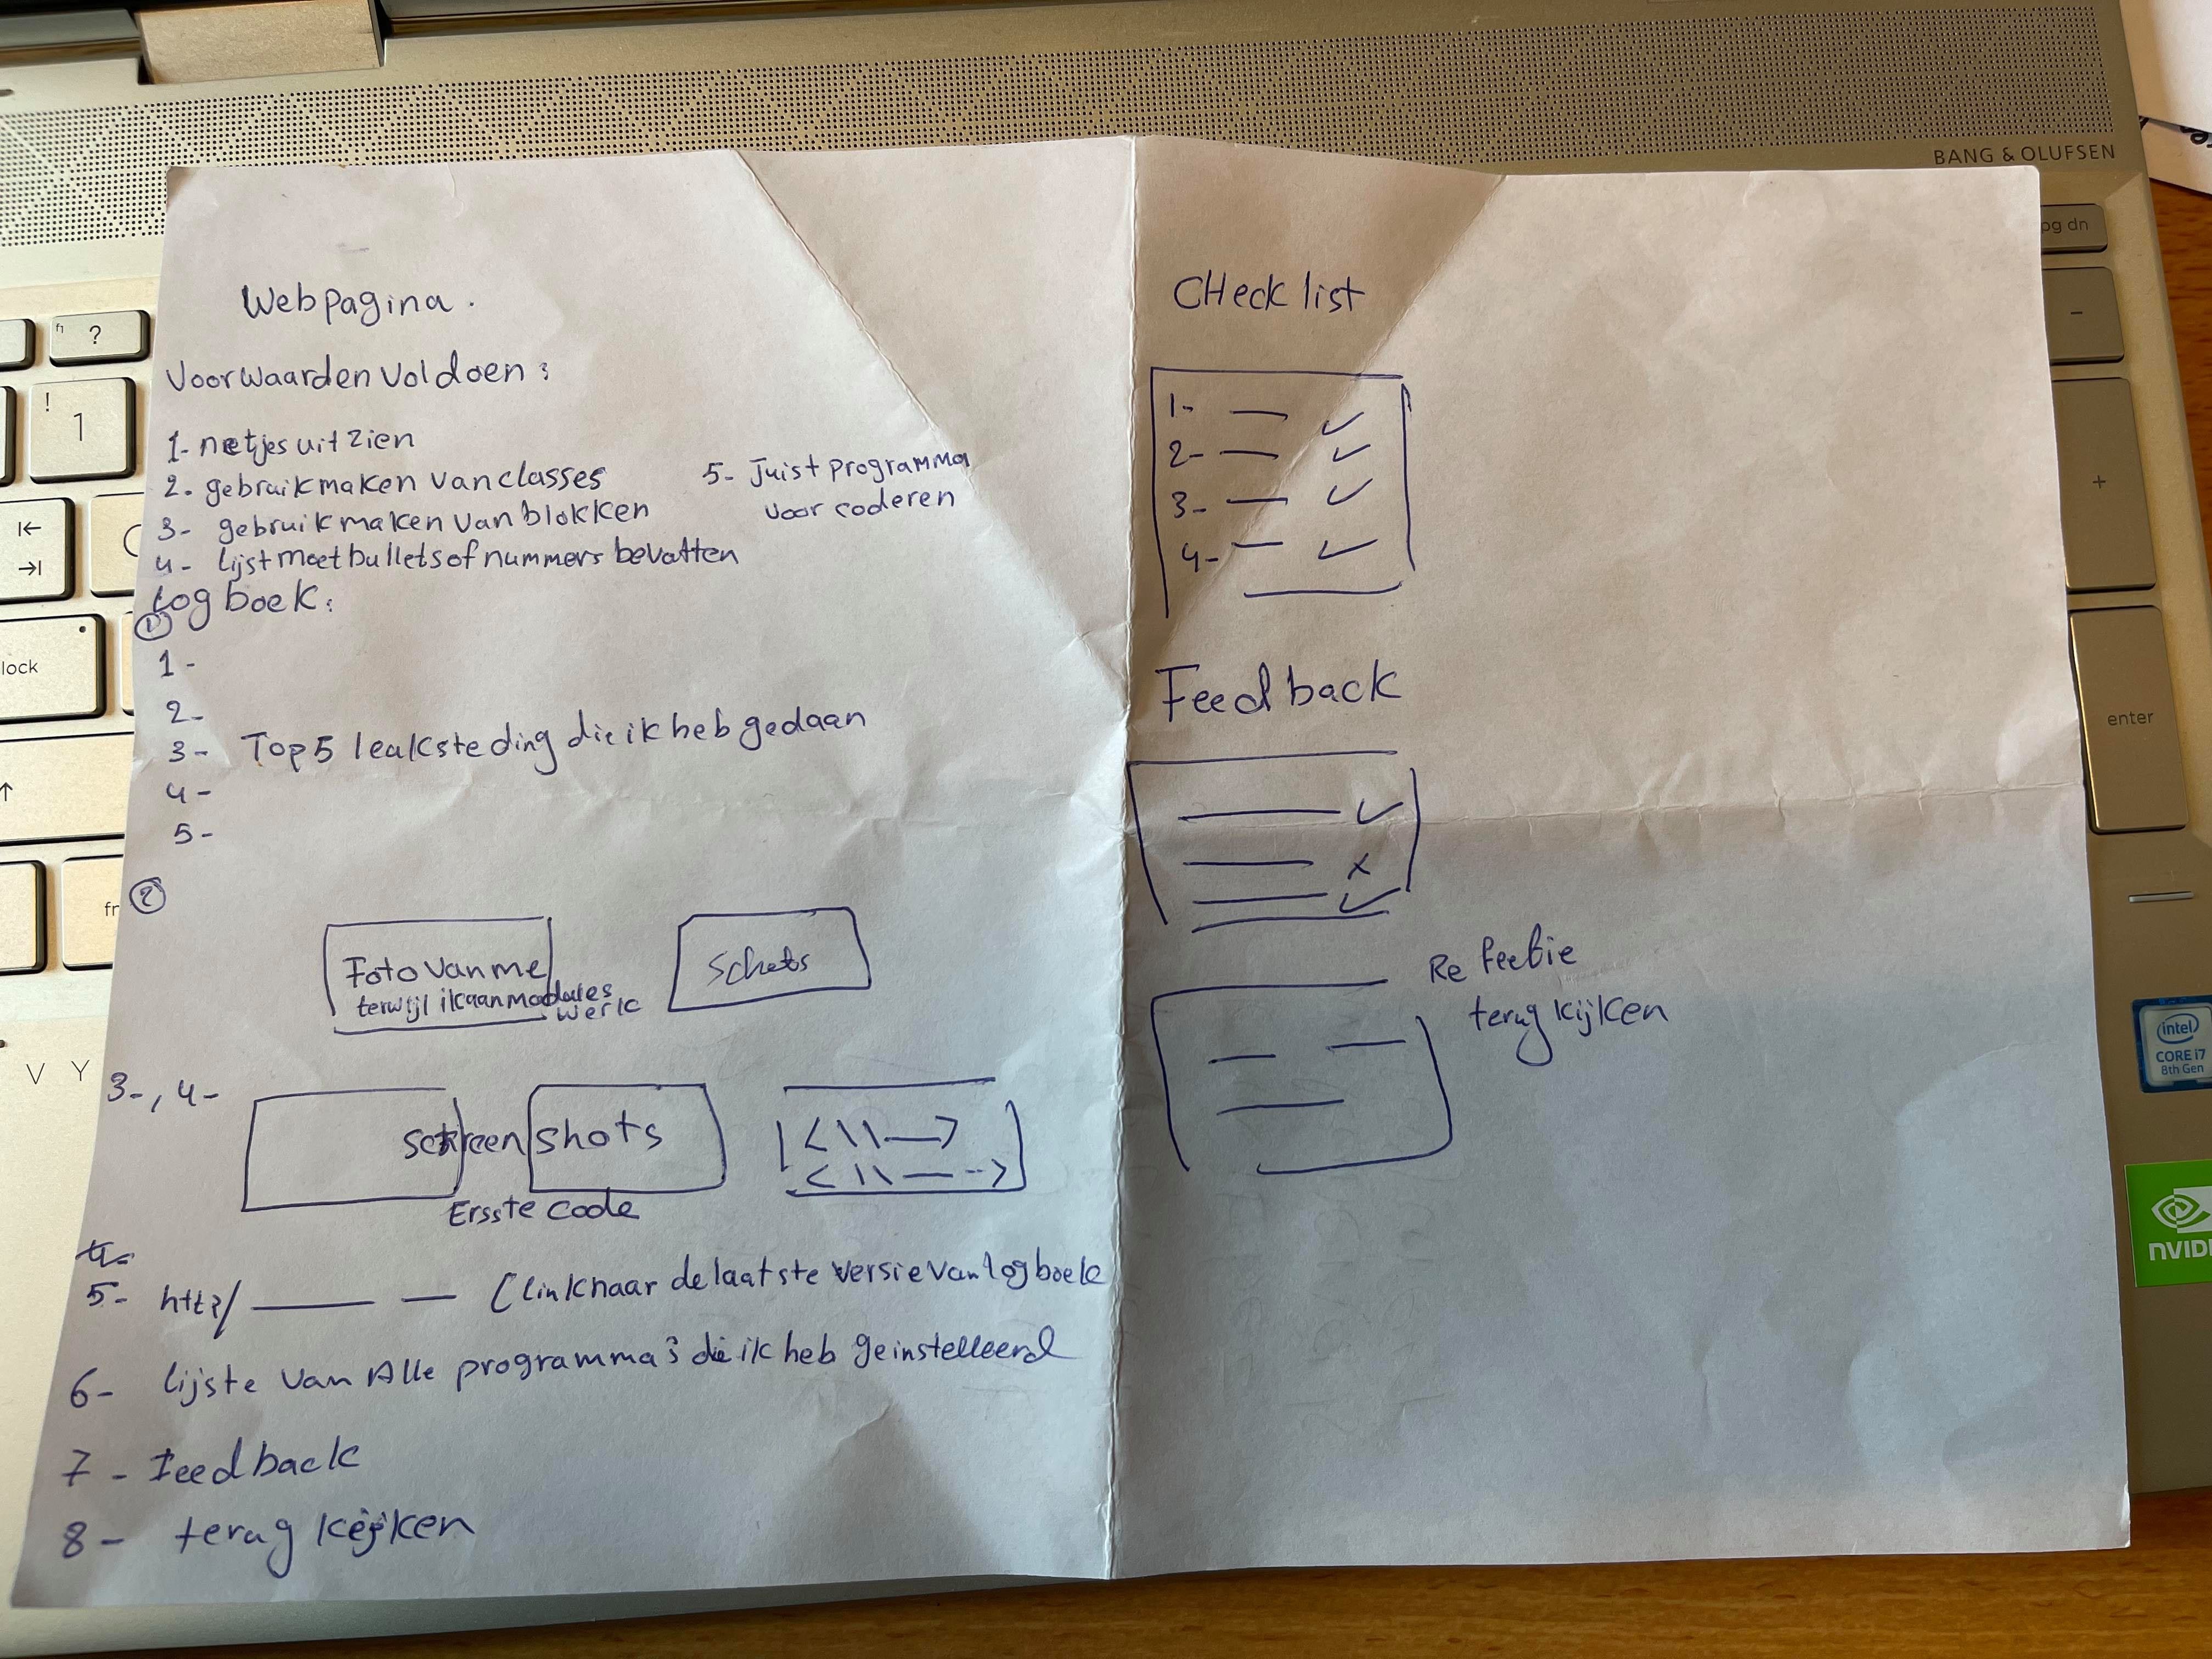 BANG & OLUFSEN
Webpagina.
Voorwaarden voldoen:
1- netjes uit zien
2. gebruik maken van classes
3- gebruik maken van blokken
4- lijst meet bullets of nummers bevatten
5- Juist programma
voor coderen
Logboek:
1
1-
2-
3- Top 5 leakste ding die ik heb gedaan
4-
5-
2
Foto van me
terwijl ik aan modules
werk
Schets
3-, 4-
screenshots
<\\—>
<\\—-->
Ersste code
5- http/ (link naar de laatste versie van logboek
6- lijste van Alle programma's die ik heb geinstelleerd
7- Feedback
8- terug kijken
CHeck list
1-
2-
3-
4-
Feedback
terug kijken
pg dn
-
+
enter
f1 ?
! 1
lock
fn
V Y
intel
CORE i7
8th Gen
NVIDI